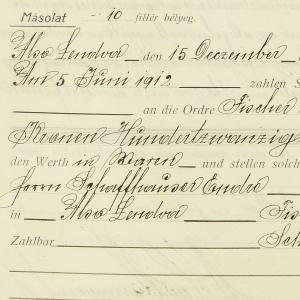 Másolat 10 fillér bélyeg.
Alsó Lendva den 15 Dezember
Am 5 Juni 1912 zahlen S
an die Ordre Fischer
Kronen Hundertzwanzig
den Werth in Waren und stellen solch
Herrn Schaffhauser Endre
in Alsó Lendva Fis
Zahlbar Sch